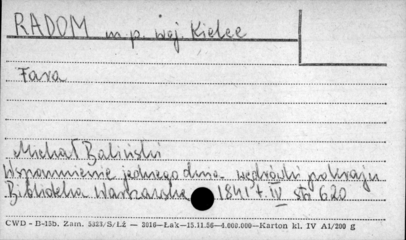 RADOM m. p. woj. Kielce
Fara
Michał Baliński
Wspomnienie jednego dnia wędrówki po kraju
Biblioteka Warszawska 1841 t IV str 620
CWD - B-15b. Zam. 5323/S/Łż — 3016—Łak—15.11.56—4.000.000—Karton kl. IV A1/200 g